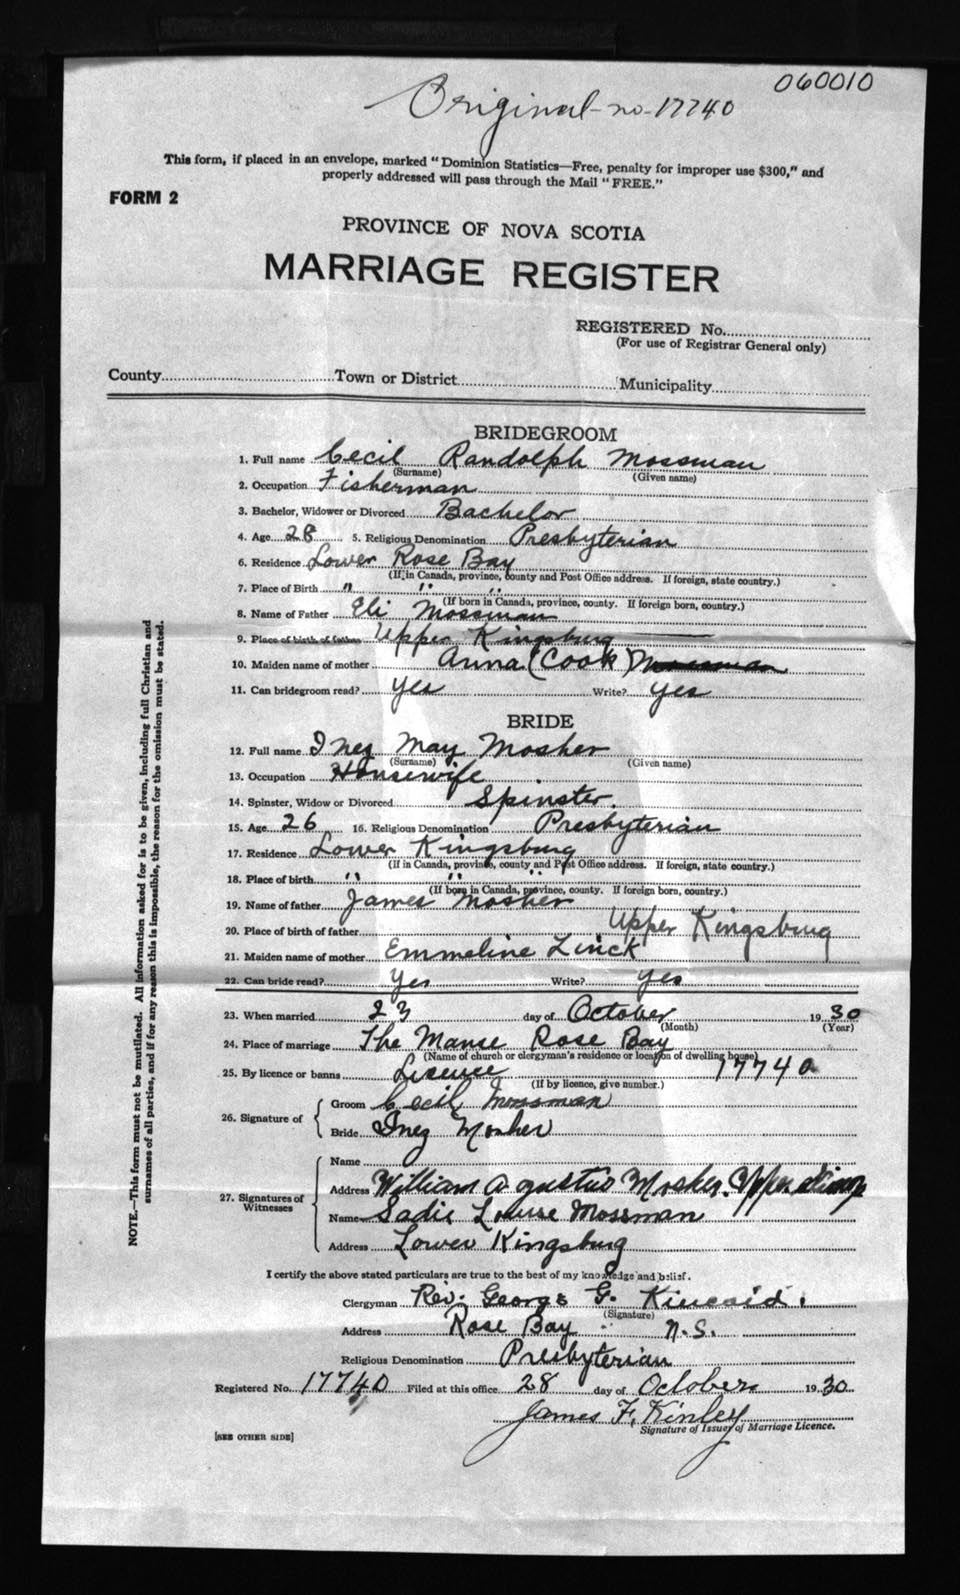 060010
Original-no-17740
This form, if placed in an envelope, marked "Dominion Statistics—Free, penalty for improper use $300," and
properly addressed will pass through the Mail "FREE."
FORM 2
PROVINCE OF NOVA SCOTIA
MARRIAGE REGISTER
REGISTERED No.
(For use of Registrar General only)
County Town or District Municipality
BRIDEGROOM
1. Full name Cecil Randolph Mossman
(Surname) (Given name)
2. Occupation Fisherman
3. Bachelor, Widower or Divorced Bachelor
4. Age 28 5. Religious Denomination Presbyterian
6. Residence Lower Rose Bay
(If in Canada, province, county and Post Office address. If foreign, state country.)
7. Place of Birth " " "
(If born in Canada, province, county. If foreign born, country.)
8. Name of Father Eli Mossman
9. Place of birth of father Upper Kingsburg
10. Maiden name of mother Anna (Cook) Mossman
11. Can bridegroom read? yes Write? yes
BRIDE
12. Full name Inez May Mosher
(Surname) (Given name)
13. Occupation Housewife
14. Spinster, Widow or Divorced Spinster.
15. Age 26 16. Religious Denomination Presbyterian
17. Residence Lower Kingsburg
(If in Canada, province, county and Post Office address. If foreign, state country.)
18. Place of birth " " "
(If born in Canada, province, county. If foreign born, country.)
19. Name of father James Mosher
20. Place of birth of father Upper Kingsburg
21. Maiden name of mother Emmeline Linck
22. Can bride read? Yes Write? yes
23. When married 23 day of October 1930
(Month) (Year)
24. Place of marriage The Manse Rose Bay
(Name of church or clergyman's residence or location of dwelling house)
25. By licence or banns Lisence 17740
(If by licence, give number.)
26. Signature of
Groom Cecil Mossman
Bride Inez Mosher
27. Signatures of Witnesses
Name
Address William Agustus Mosher. Upper
Name Sadie Louise Mossman
Address Lower Kingsburg
I certify the above stated particulars are true to the best of my knowledge and belief.
Clergyman Rev. George G. Kincaid.
(Signature)
Address Rose Bay N.S.
Religious Denomination Presbyterian
Registered No. 17740 Filed at this office 28 day of October 1930
James F. Kinley
Signature of Issuer of Marriage Licence.
[SEE OTHER SIDE]
NOTE.—This form must not be mutilated. All information asked for is to be given, including full Christian and
surnames of all parties, and if for any reason this is impossible, the reason for the omission must be stated.